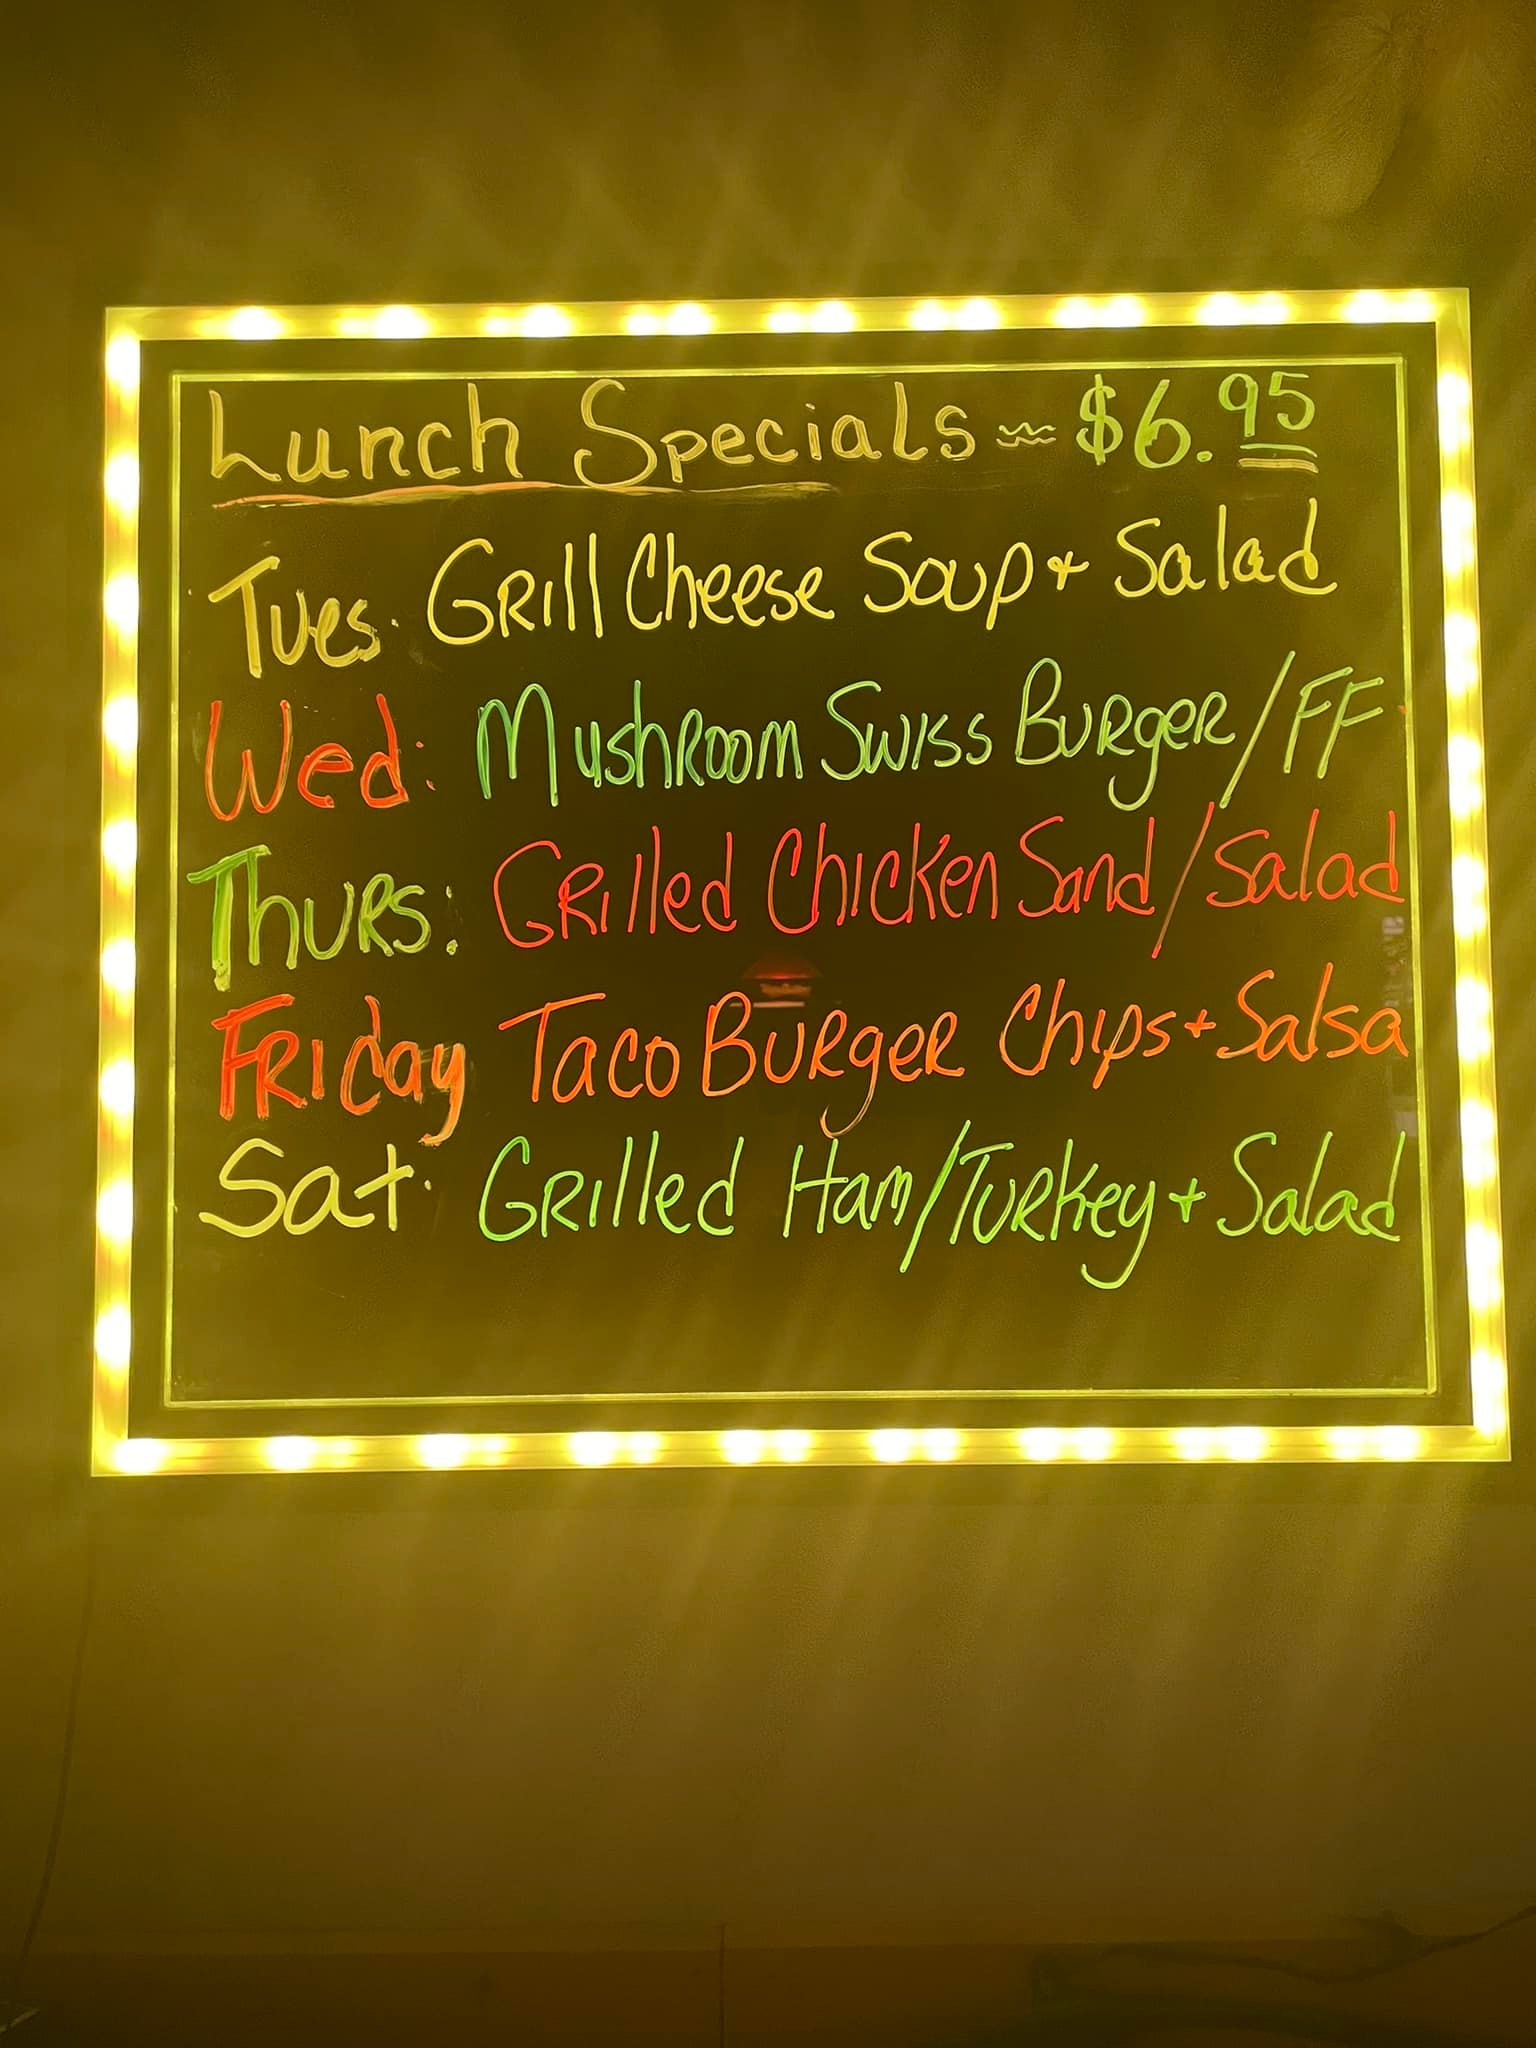 Lunch Specials ~ $6.95
Tues. Grill Cheese Soup + Salad
Wed: Mushroom Swiss Burger/FF
Thurs: Grilled Chicken Sand/Salad
Friday Taco Burger Chips + Salsa
Sat. Grilled Ham/Turkey + Salad